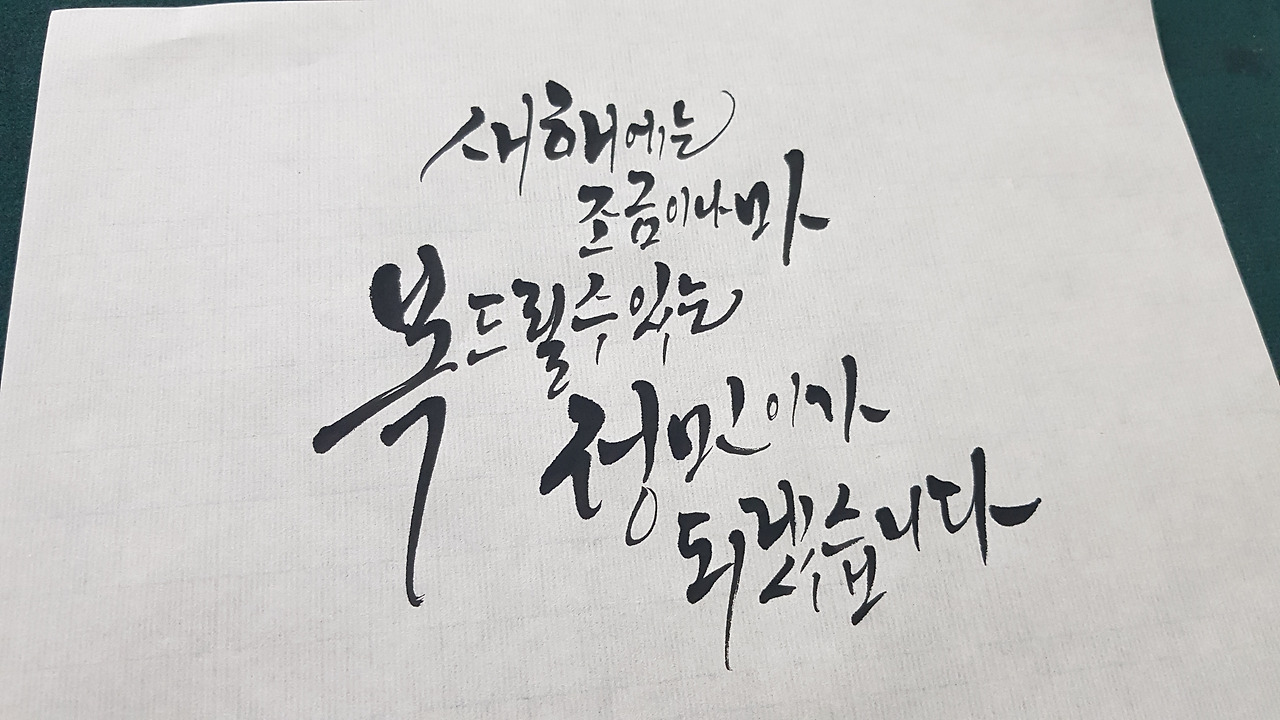 새해에는
조금이나마
복드릴수있는
정민이가
되겠습니다